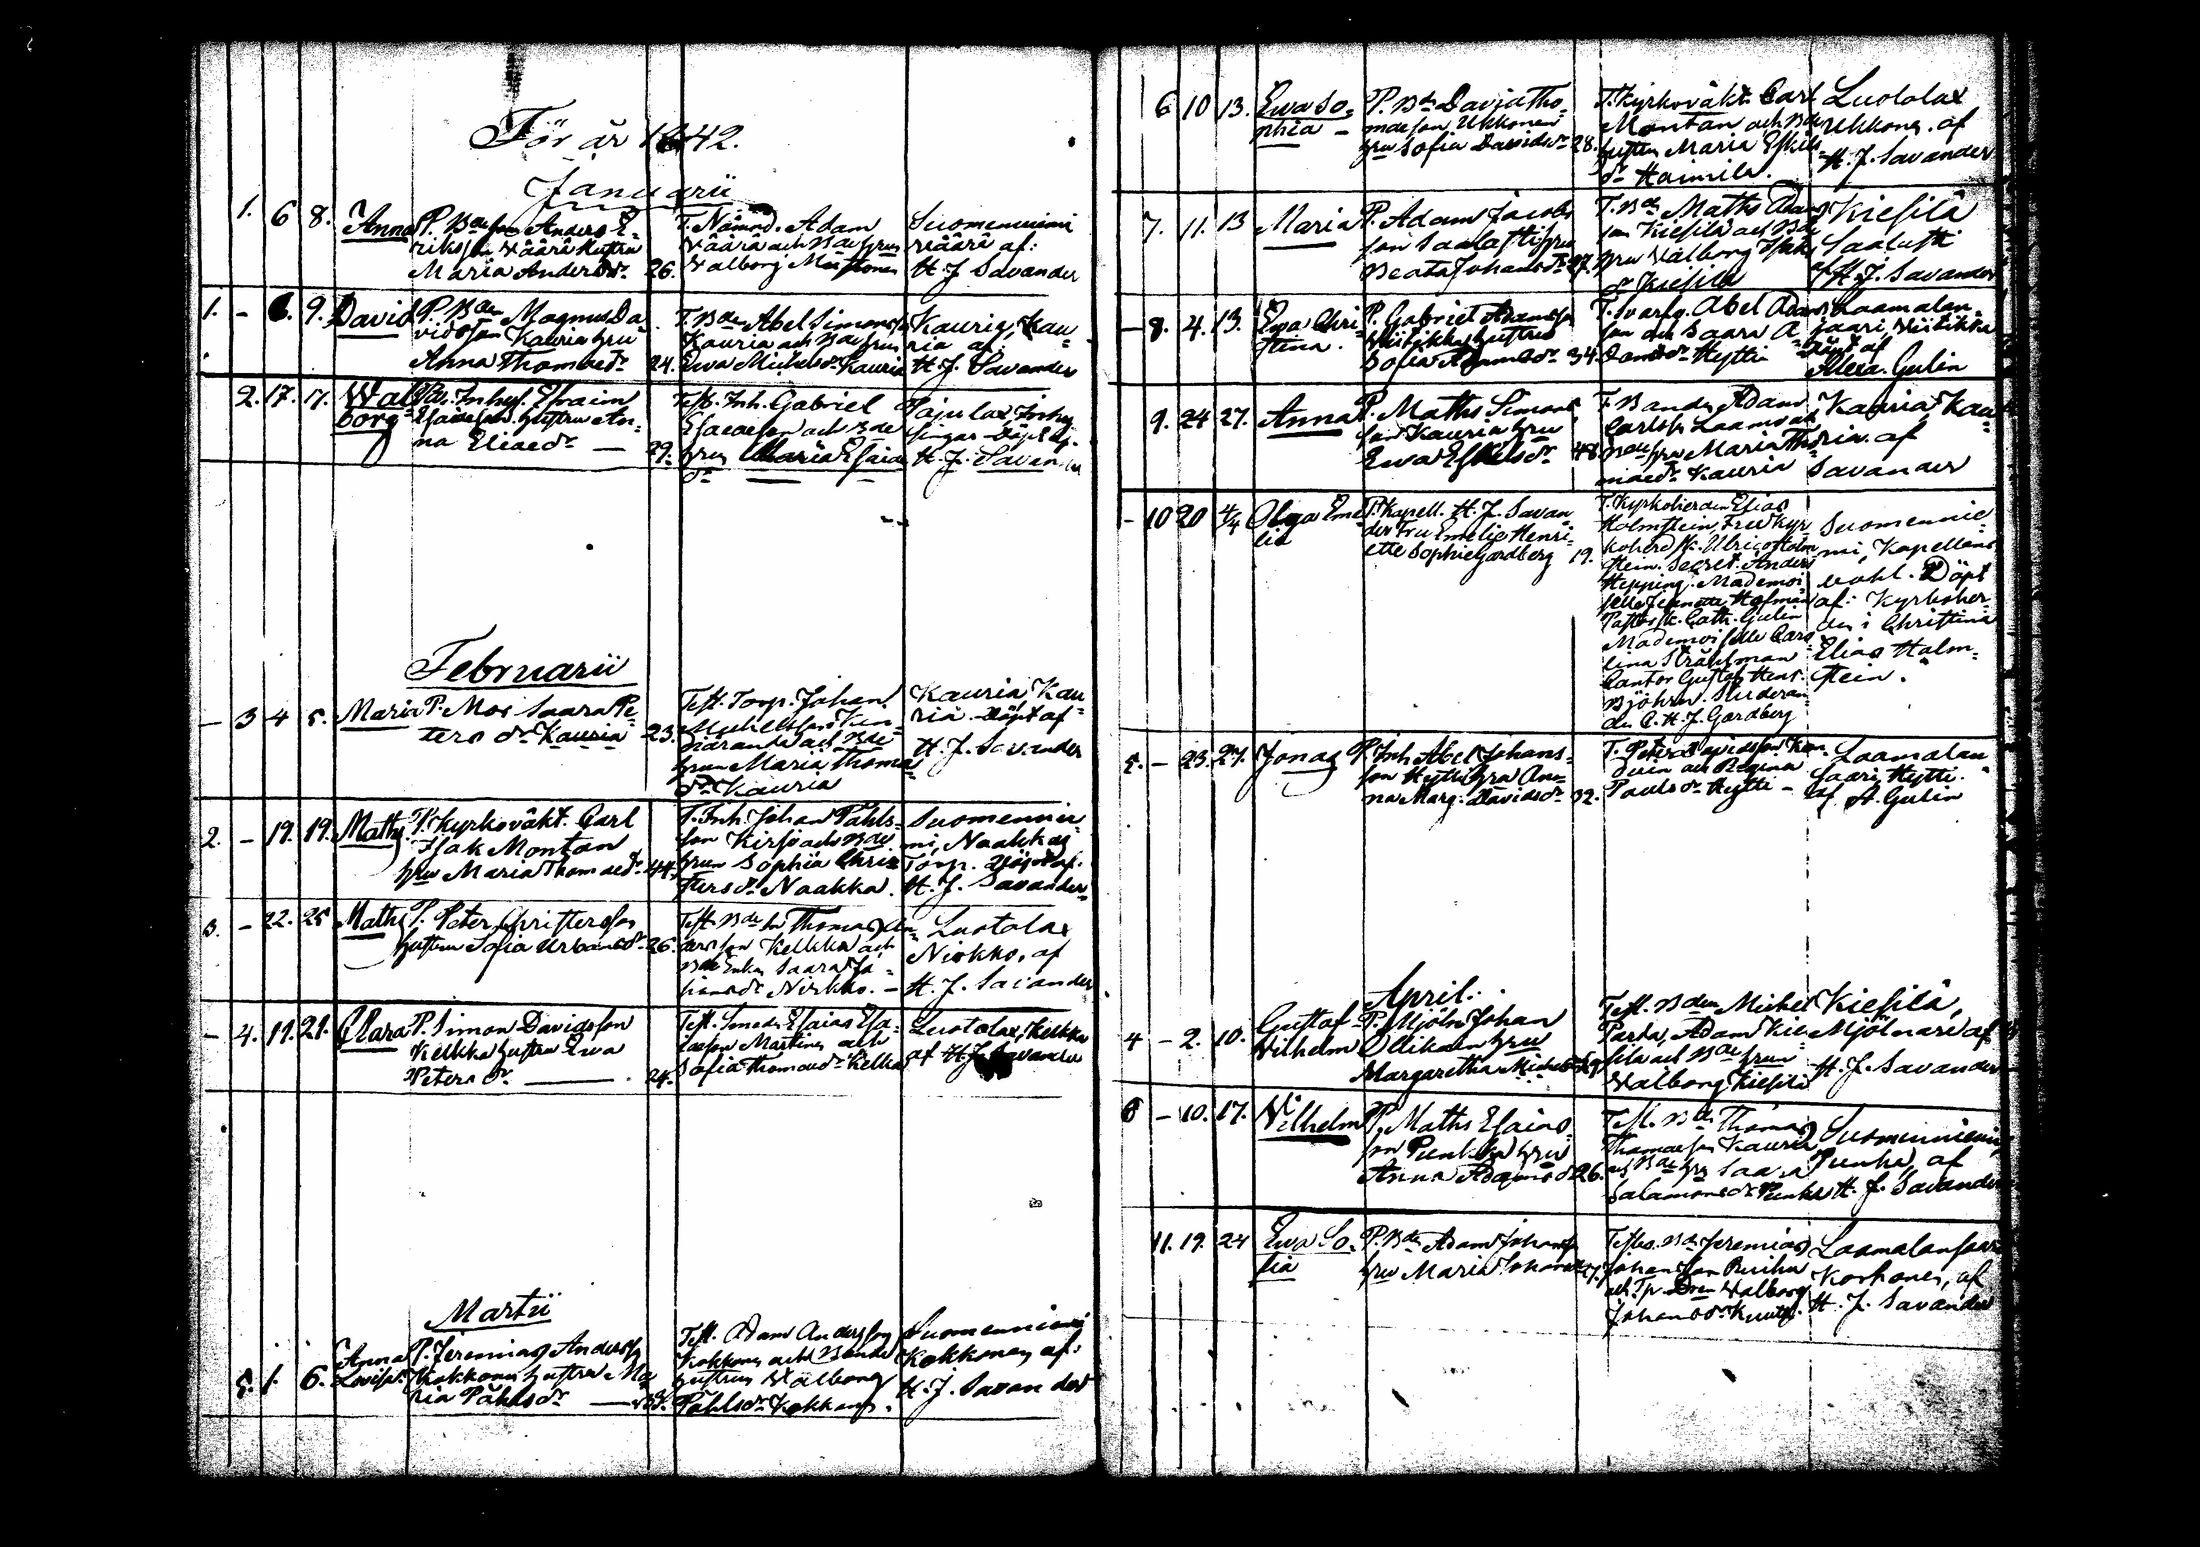 För år 1842.
Januarii
1. 6 8. Anna P. Bdeson Anders E-
riksson Väärä hustru
Maria Andersdr. 26.
T. Nämnd. Adam
Väärä och Bde hrun
Valborg Mustonen
Suomenniemi
Väärä af:
H. J. Savander
1. - 6. 9. David P. Bden Magnus Da-
vidsson Kauria hru
Anna Thomaedr. 24.
T. Bden Abel Simonss
Kauria och Bde hrun
Ewa Michelsdr. Kauria
Kauria, Kau-
ria af
H. J. Savander
2. 17. 17. Wal-
borg Inhys. Efraim
Esaiesson hustru An-
na Eliaedr. — 29.
Test. Inh. Gabriel
Esaiesson och Bde
hrun Maria Esaiae
dr
Pajulax Inhy-
singar Döpt af
H. J. Savander
Februarii
- 3 4 5. Maria P. Mor Saara Pe-
ters dr Kauria 23.
Test. Torp. Johan
Michelsson
och Bde
hrun Maria Thomae
dr Kauria
Kauria Kau-
ria Döpt af
H. J. Savander
2. - 19. 19. Maths P. Kyrkoväkt. Carl
Isak Montan
hru Maria Thomaedr. 44.
T. Inh. Johan Påhls-
son Kirsi och Bde
hrun Sophia Chris-
tersdr. Naakka.
Suomennie-
mi, Naakka
Torp. Döpt af
H. J. Savander
3. - 22. 25 Maths P. Peter Christersson
hustru Sofia Urbansdr. 26.
Test. Bdeson Thomas An-
dersson Kelkka och
Bde Enkan Saara Jo-
hansdr Nirkko. -
Luotolax
Nirkko, af
H. J. Savander
- 4. 19. 21. Clara P. Simon Davidsson
Kelkka hustru Ewa
Petersdr. — 24.
Test. Smeden Esaias Esa-
iaesson Martinen och
Sofia Thomaedr Kelkka
Luotolax, Kelkka
af H. J. Savander
Martii
5. 1. 6. Anna
Lovisa P. Jeremias Anderss
Kokkonen hustru Ma-
ria Påhlsdr —
Test. Adam Andersson
Kokkonen och Bonde
hustrun Valborg
Påhlsdr Kokkonen.
Suomenniemi
Kokkonen af:
H. J. Savander
6 10 13. Ewa So-
phia - P. Bde David Tho-
maeson Ukkonen
hru Sofia Davidsdr 28.
T. Kyrkoväkt. Carl
Montan och Bde
hustru Maria Eskils
dr Haimila.
Luotolax
Ukkonen. af
H. J. Savander
7. 11. 13 Maria P. Adam Jacobs
son Saalasti hru
Beata Johansdr 27.
T. Bde Maths Adams
son Kiesilä och Bde
hru Valborg
Kiesilä
Kiesilä
Saalasti
af H. J. Savander
- 8. 4. 13. Ewa Chri-
stina. P. Gabriel Adamsson
Wiitikka hustru
Sofia Adamsdr 34.
T. Svarfv. Abel Adams
son och Saara A-
damsdr Hytti
Laamalan-
saari, Wiitikka
Döpt af
Alexa. Gulin
9. 24 27. Anna P. Maths Simons
son Kauria hru
Ewa Eskilsdr 48.
T. Bonden Adam
Carlss. Laamanen
Bde hru Maria Tho-
maedr Kauria
Kauria Kau-
ria. af
Savander
- 10 20 4/4 Olga Eme-
lia P. Kapell. H. J. Savan-
der Fru Emelie Henri-
ette Sophie Gardberg 19.
T. Kyrkoherden Elias
Holmstein, Fru Kyr-
koherdsk. Ulrica Holm-
stein. Secret. Anders
Hepping. Mademoi-
selle Jeanette Hofman
Pastorsk. Cath. Gulin
Mademoiselle Caro-
lina Stråhlman
Cantor Gustaf Henr.
Björken. Studeran-
den C. H. J. Gardberg
Suomennie-
mi, Kapellans
bohl. Döpt
af: Kyrkoher-
den i Christina
Elias Holm-
stein.
5. - 23. 27. Jonas P. Inh Abel Johans-
son Hytti hru An-
na Marg. Davidsdr 32.
T. Peter Davidsson
och Regina
Paulsdr Hytti -
Laamalan-
saari Hytti.
af A. Gulin
April.
4 - 2. 10. Gustaf
Wilhelm P. Mjöln Johan
Ollikainen hru
Margaretha Michelsdr
Test. Bden Michel
Parda, Adam Kie-
silä och Bde hrun
Valborg Kiesilä
Kiesilä,
Mjölnare af
H. J. Savander
6 - 10. 17. Wilhelm P. Maths Esaias-
son Punkka hru
Anna Adamsdr 26.
Test. Bde Thomas
Thomaesson Kauria
och Bde hru Saara
Salamonsdr Punkka
Suomenniemi,
Punka, af
H. J. Savander
11. 19. 24 Ewa So-
fia P. Bde Adam Johanss
hru Maria Johansdr
Testes. Bde Jeremias
Johansson
och Tp. Dren Valborg
Johansdr
Laamalansaari
Korhonen, af
H. J. Savander